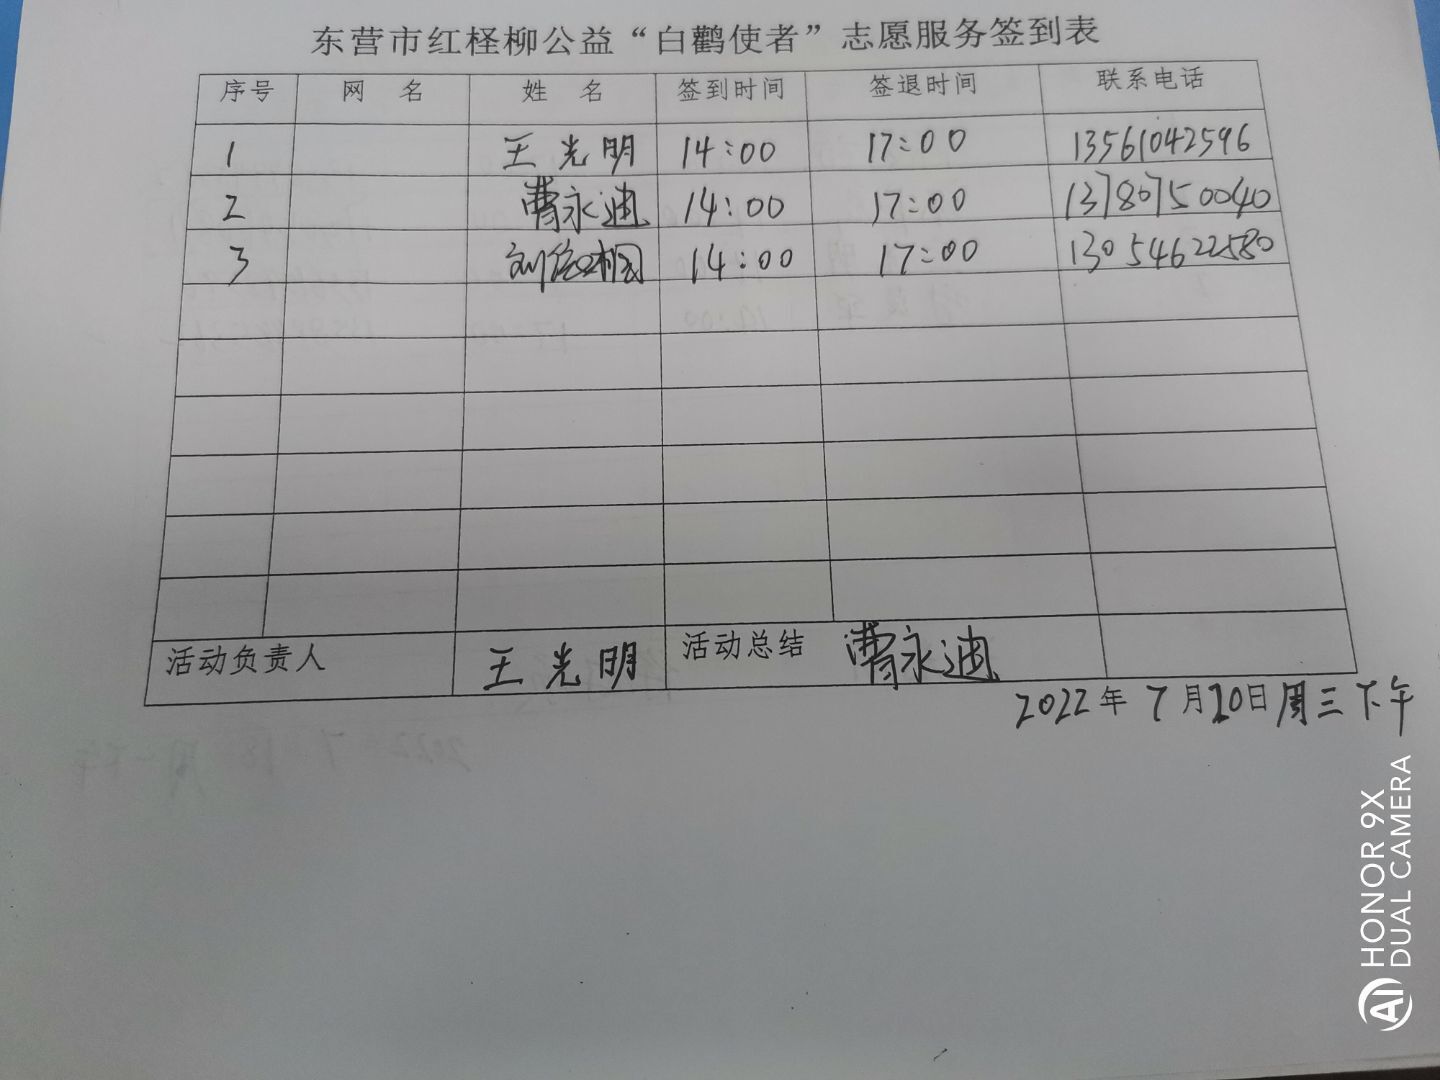 东营市红柽柳公益“白鹳使者”志愿服务签到表
序号 网 名 姓 名 签到时间 签退时间 联系电话
1 王光明 14:00 17:00 13561042596
2 曹永迪 14:00 17:00 13780750040
3 14:00 17:00 13054622580
活动负责人 王光明 活动总结 曹永迪
2022年7月20日周三下午
HONOR 9X
DUAL CAMERA